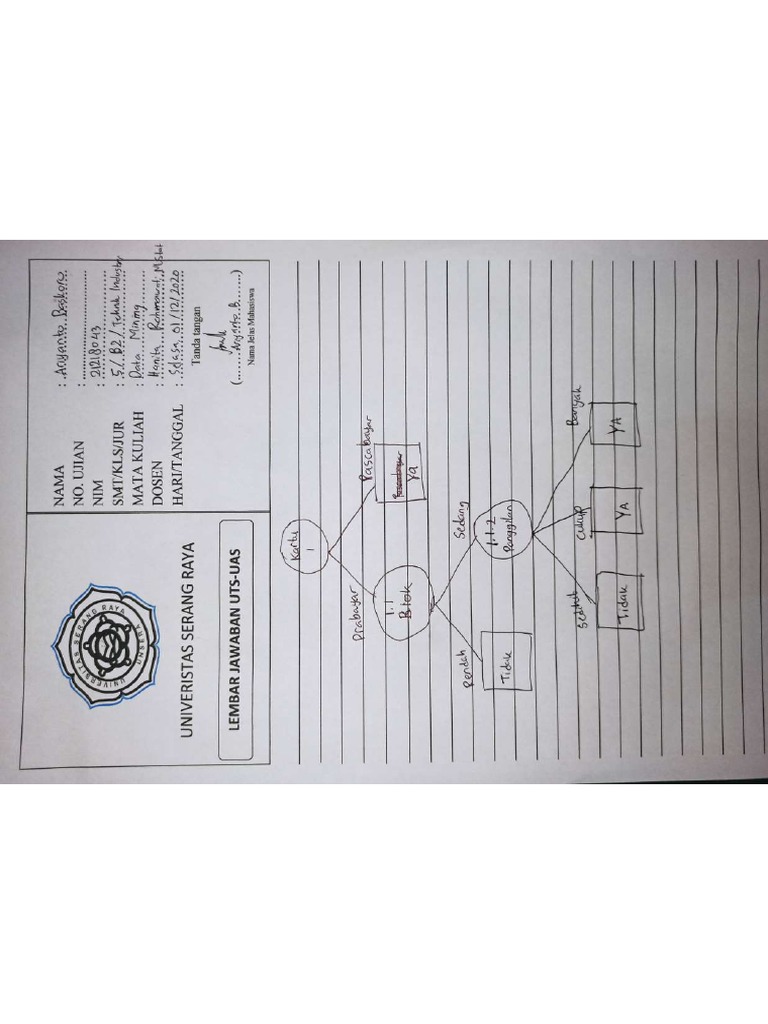 UNIVERSITAS SERANG RAYA
UNSERA
UNIVERISTAS SERANG RAYA
LEMBAR JAWABAN UTS-UAS
NAMA : Aryanto Baskoro
NO. UJIAN :
NIM : 21218043
SMT/KLS/JUR : 5/B2/Teknik Industry
MATA KULIAH : Data Mining
DOSEN : Hanita Rohmawati, M.Stat
HARI/TANGGAL : Selasa, 01/12/2020
Tanda tangan
(Aryanto B.)
Nama Jelas Mahasiswa
Kartu
1
Prabayar
Pascabayar
1.1
Blok
Ya
Rendah
Sedang
Tidak
1.1.2
Panggilan
Sedikit
Cukup
Banyak
Tidak
YA
YA